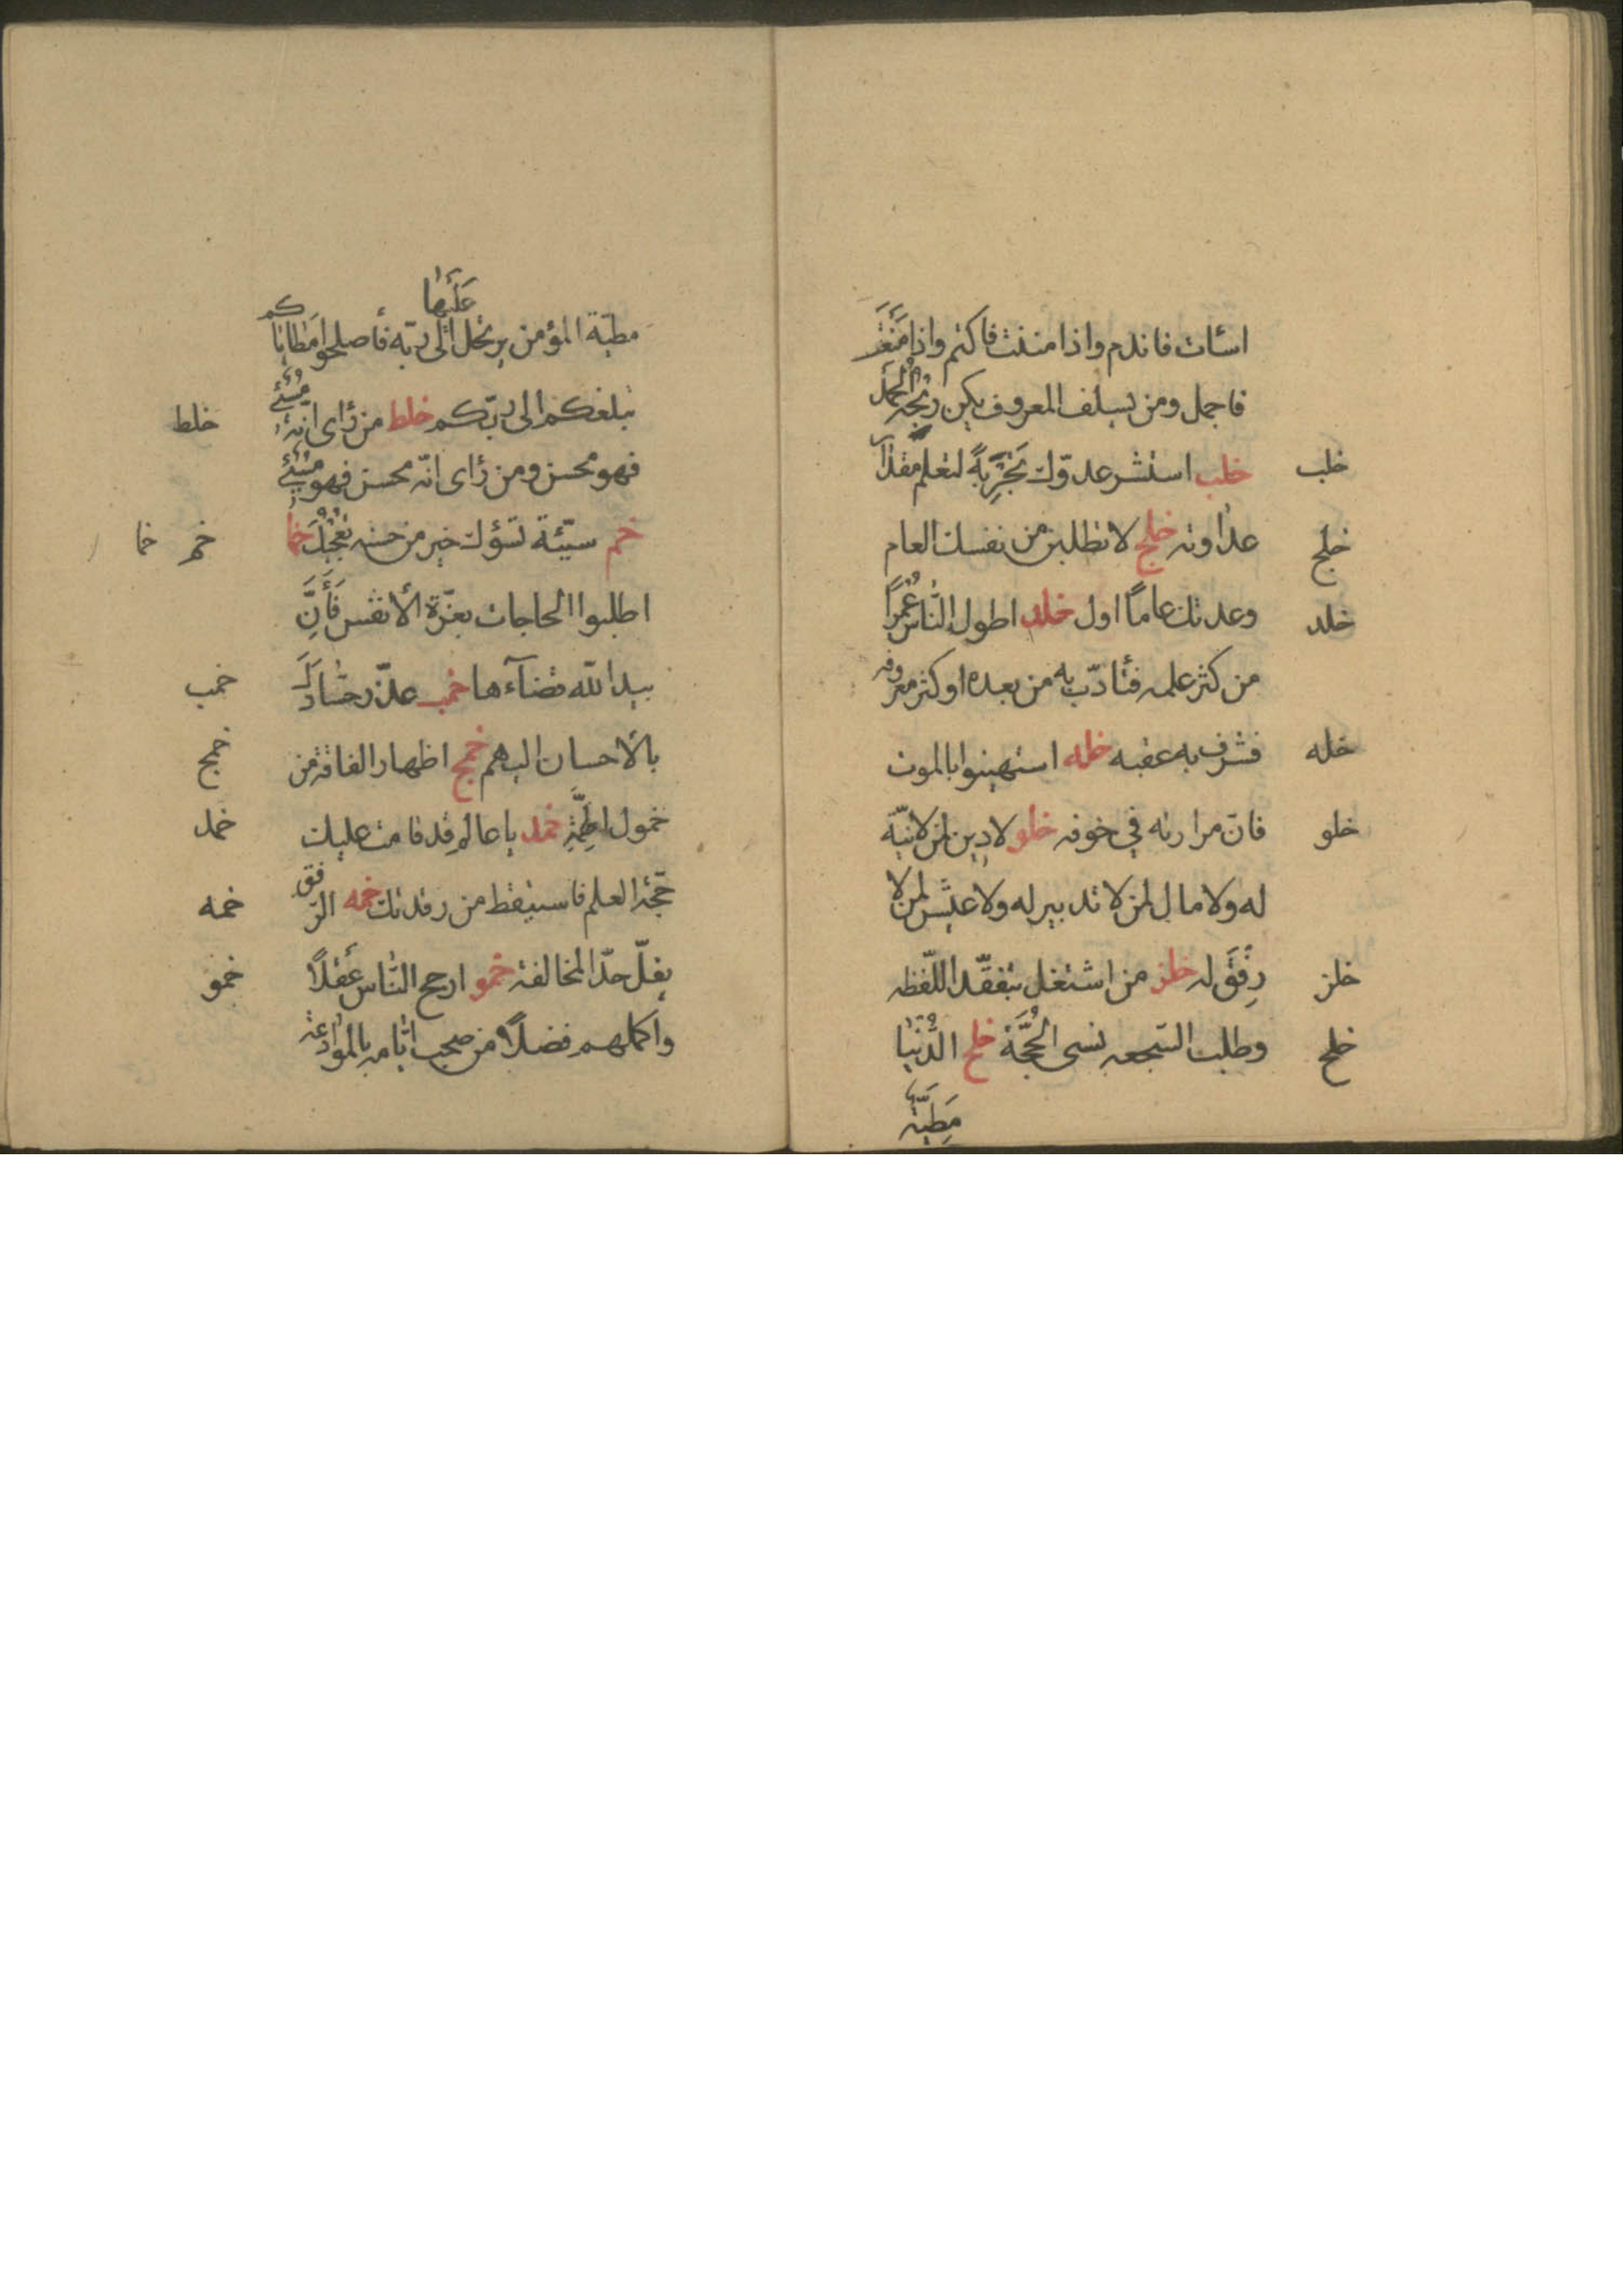 اسأت فاندم واذا مننت فاكتم واذا منعت
فاجمل ومن يسلف المعروف يكن ربحه الحمد
خلب خلب استشر عدوّك تجربةً لتعلم مقدار
خلج عداوته خلج لا تطلبن من نفسك العام
خلد وعدتك عاماً اول خلد اطول الناس عُمراً
من كثر علمه فتأدّب به من بعده او كثر معروفه
خله فشرف به عقبه خله استهينوا بالموت
خلو فان مرارته في خوفه خلو لا دين لمن لا نيّة
له ولا مال لمن لا تدبير له ولا عيش لمن لا
خلز رِفقَ له خلز من اشتغل بتفقّد اللّفظه
خلح وطلب السّجعه نسى الحُجَّة خلح الدُّنيا
مَطيّة
مطيّة المؤمن عَلَيها يرتحل الى ربّه فأصلحوا مطاياكم
خلط تبلغكم الى ربّكم خلط من رأى انّه مُسِئ
فهو محسن ومن رأى انّه محسن فهو مُسِئ
خم خما خم سيّئة تسؤك خير من حسنه تعجبك خما
اطلبوا الحاجات بعزّة الأنفس فَأنَّ
خمب بيد الله قضآءها خمب عذّب حسّادك
خمج بالاحسان اليهم خمج اظهار الفاقة من
خمد خمول الهمّة خمد يا عالم قد قامت عليك
خمه حجّة العلم فاستيقظ من رقدتك خمه الرّفق
خمو يفلّ حدّ المخالفة خمو ارجح النّاس عَقلاً
واكملهم فضلاً من صحب ايّامه بالموادعة